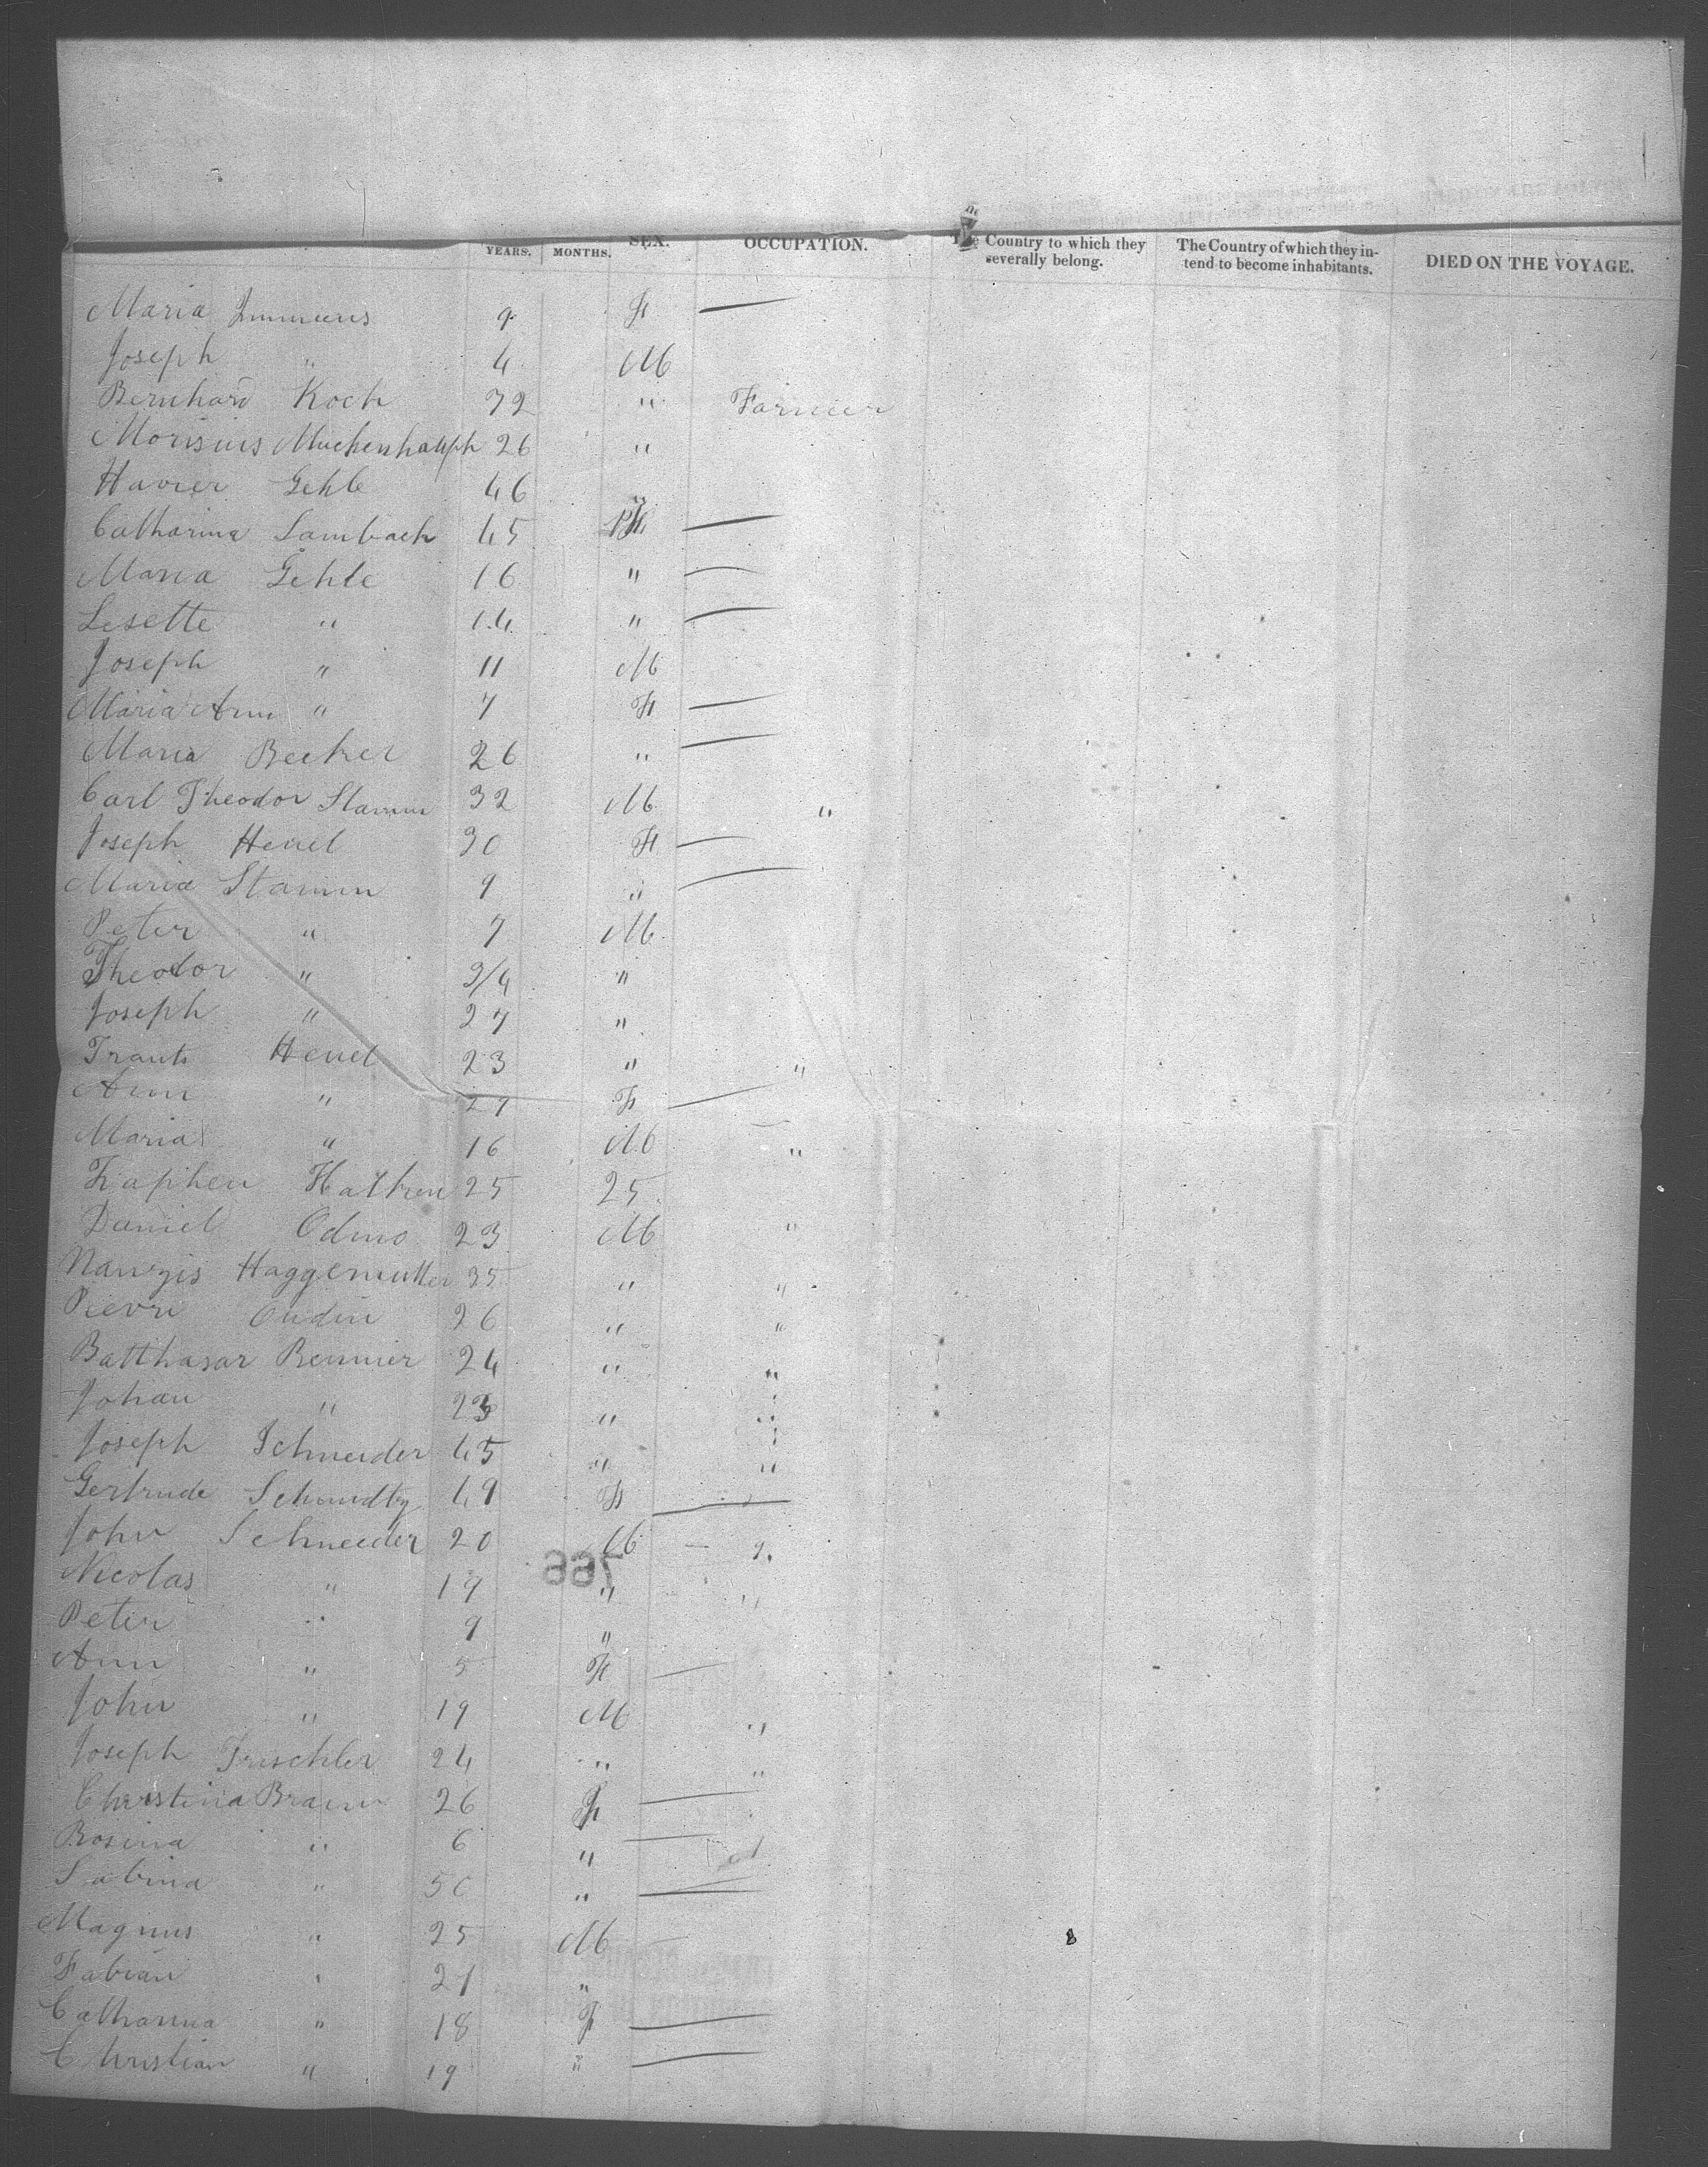 YEARS. MONTHS. SEX. OCCUPATION. The Country to which they severally belong. The Country of which they intend to become inhabitants. DIED ON THE VOYAGE.
Maria Immens 9 F —
Joseph " 4 M
Bernhard Koch 32 " Farmer
Morisius Muckenhauph 26 "
Havier Gehle 46 "
Catharina Lambach 45 F —
Maria Gehle 16 " —
Lesette " 14 " —
Joseph " 11 M
Maria Ann " 7 F —
Maria Becker 26 " —
Carl Theodor Stamm 32 M "
Joseph Heuel 30 F —
Maria Stamm 9 " —
Peter " 7 M
Theodor " 3/4 "
Joseph " 27 "
Frants Heuel 23 " "
Ann " 27 F —
Maria " 16 M "
25 25
Daniel Odino 23 M "
Haggemutter 35 " "
Pievri Oudin 26 " "
Balthasar Remmer 24 " "
Johan " 23 " "
Joseph Schneider 45 " "
Gertrude Schmidtz 49 F —
John Schneider 20 M — "
Nicolas " 19 " "
Peter " 9 "
Ann " 5 F —
John " 19 M "
Joseph Trischler 24 " "
Christina Braun 26 F —
Rosina " 6 " —
Sabina " 50 " —
Magnus " 25 M —
Fabian " 21 "
Catharina " 18 F —
Christian " 19 " —